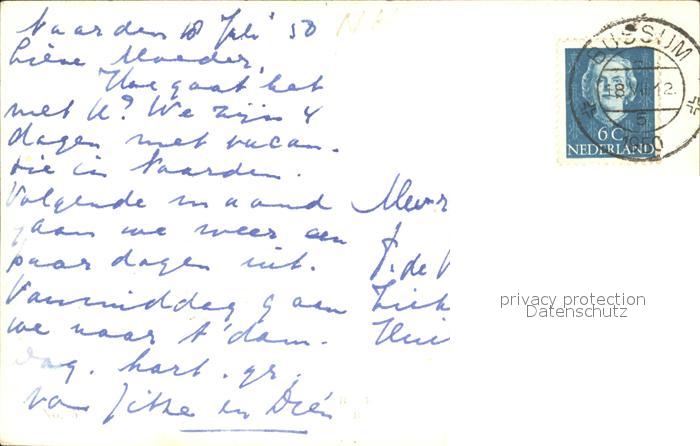 Naarden 18 Juli '50
Lieve Moeder,
Hoe gaat het
met U? We zijn 4
dagen met vacan-
tie in Naarden.
Volgende maand
gaan we weer een
paar dagen uit.
Vanmiddag gaan
we naar A'dam.
Dag. hart. gr.
van Jitske en Dién
Mevr
J. de V
Ziek
Hui
BUSSUM
18 VII 12
5
1950
6 C
NEDERLAND
privacy protection
Datenschutz